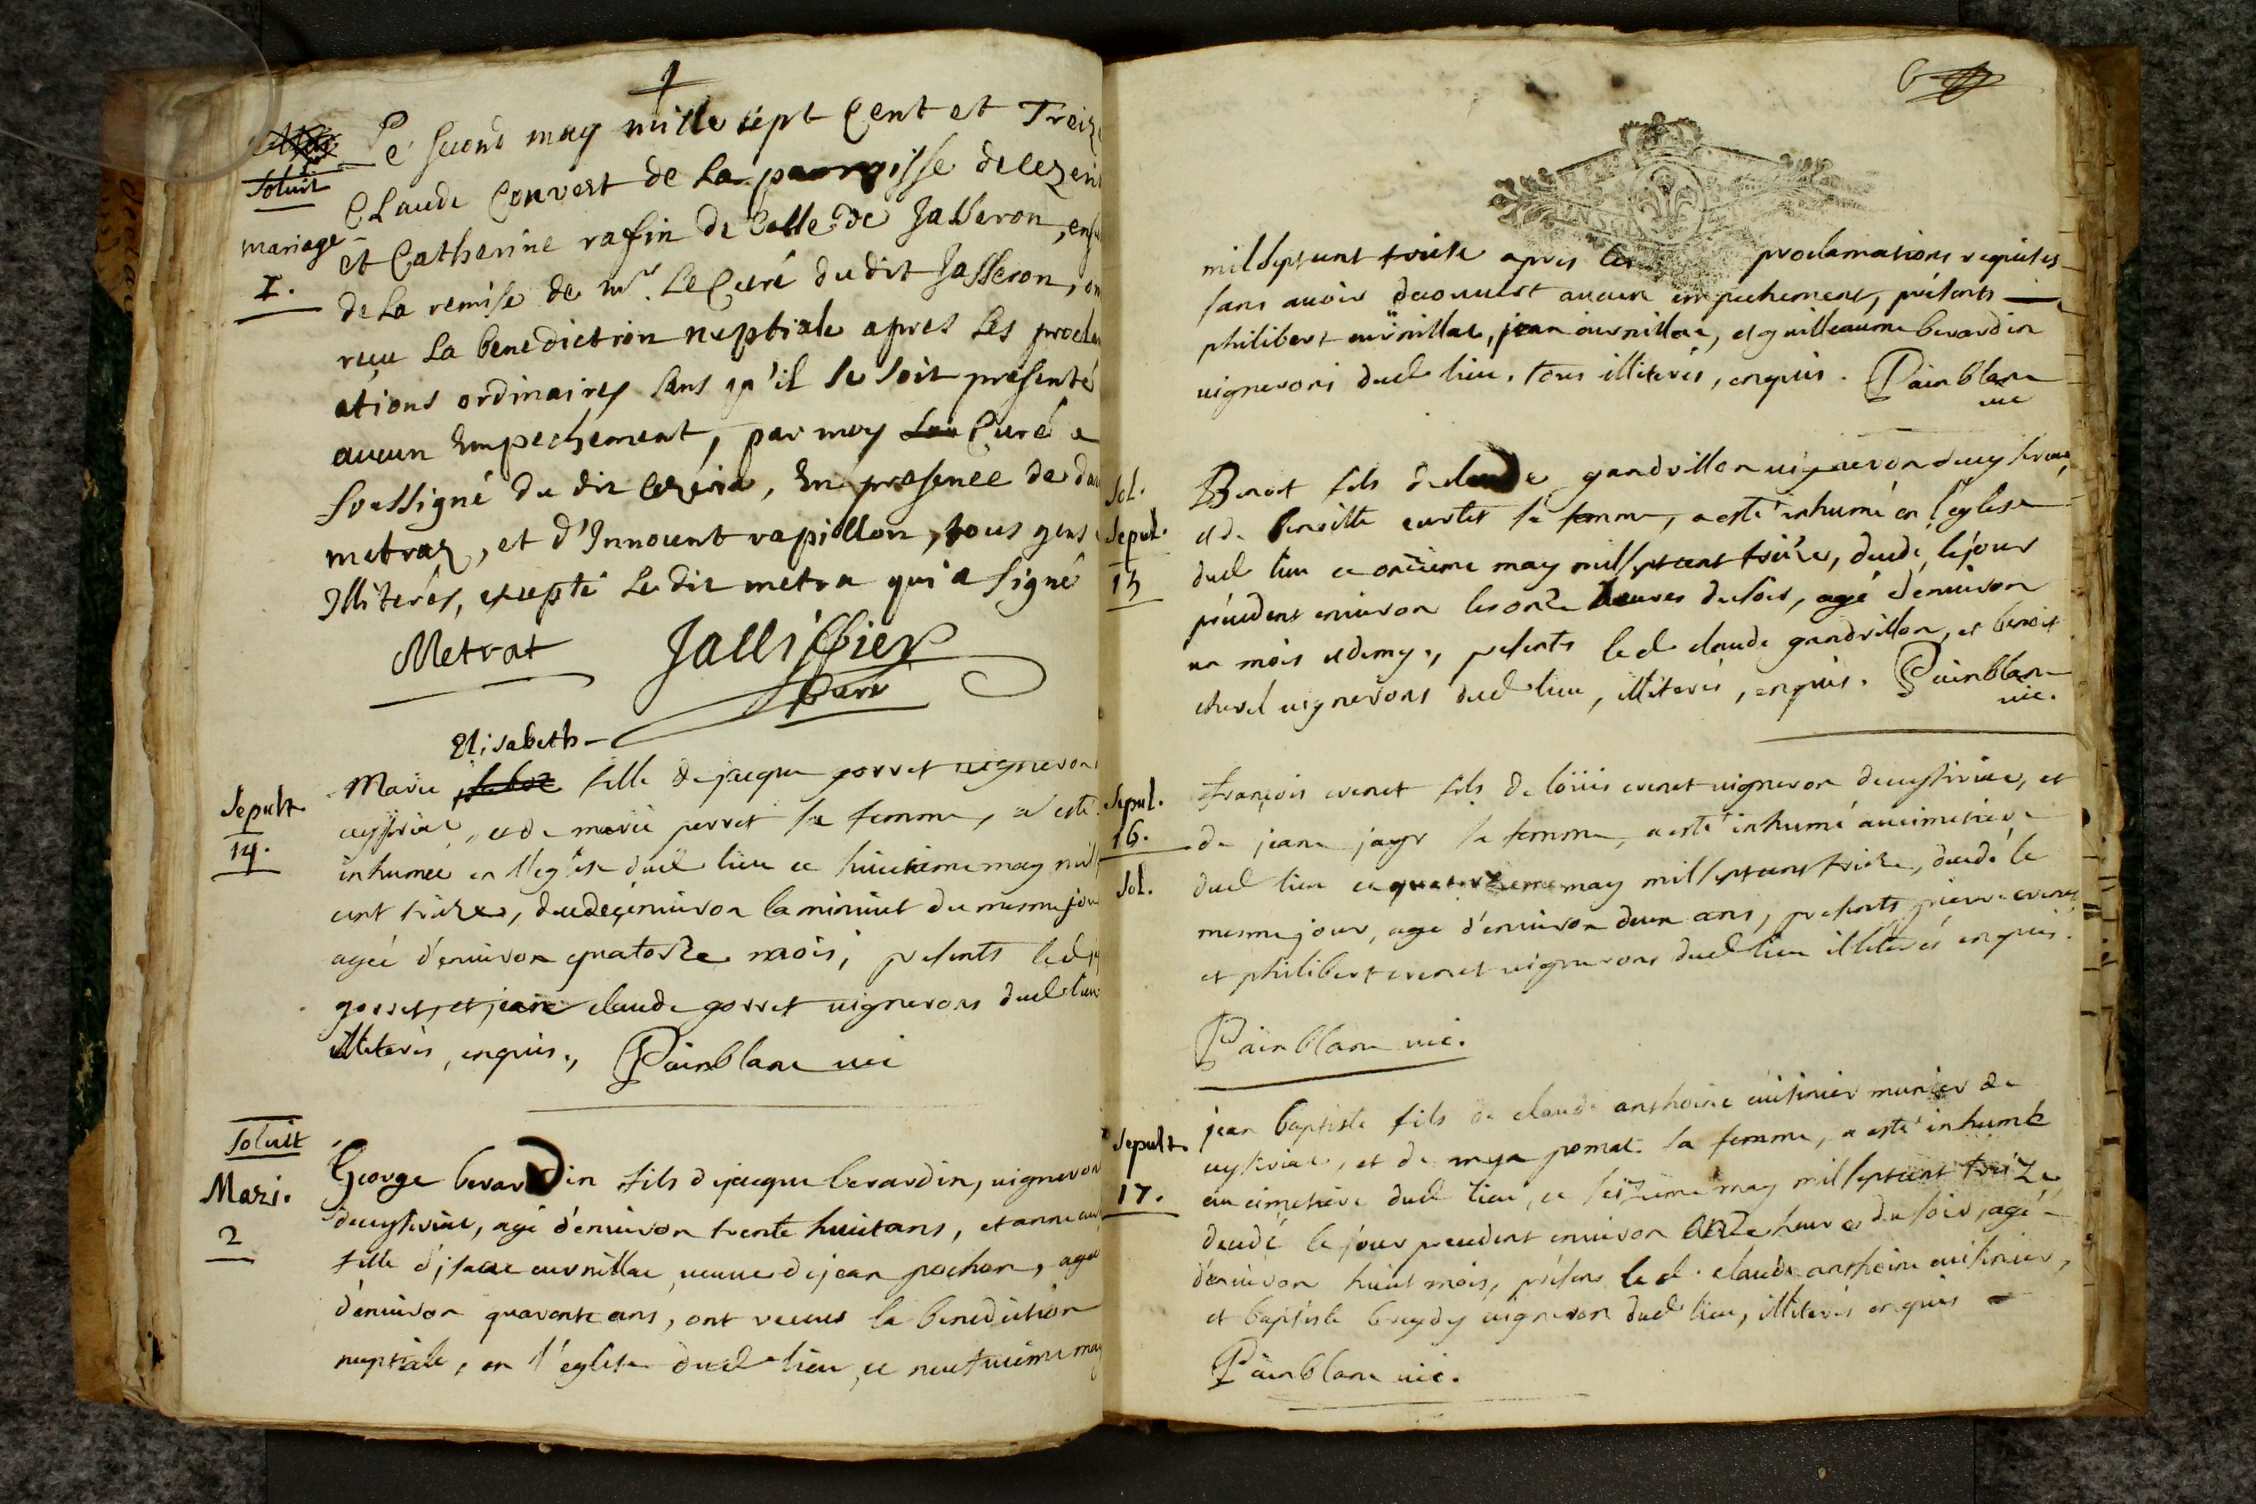 Solvit
Le second may mille sept Cent et Treize
Claude Convert de la parroisse de Cezeri
mariage
et Catherine rafin de Celle de Jasseron, ensu
1.
de La remise de mr. Le Curé dudit Jasseron, on
reçu La benediction nuptiale apres Les procla
ations ordinaires sans qu'il se soit présenté
aucun Empechement, par moy Curé
soussigné du dit Cezeria, En presence de
metraz, et d'Innocent rapillon, tous gens
Illiterés, excepté Le dit metra qui a signé
Metrat Jallissier
Curé
Elisabeth
Sepult.
14.
Marie fille de jacque gorret vigneron
ceyseriat, et de marie perret sa femme, a esté
inhumée en l'eglise dud lieu ce huictieme may mils
cent treize, decedée environ la minuit du mesme jour
agée d'environ quatorze mois, presents led
gorret, et jean claude gorret vignerons dud lieu
illiterés, enquis., Painblanc vic
Solvit
Mari.
2
George berardin fils de jacque berardin, vigneron
de ceyseriat, agé d'environ trente huict ans, et anne
fille d'isaac curnillac veuve de jean pochon, agée
d'environ quarante ans, ont receus la benediction
nuptiale, en l'eglise dud lieu, ce neufvieme may
6
mil sept cent treize apres les proclamations requises
sans avoir decouvert aucun empechement, présents
philibert curnillac, jean curnillac, et guilleaume berardin
vignerons dud lieu. tous illiterés, enquis. Painblanc
vic
Sol.
Sepul.
15
Benoit fils de claude gandrillon vigneron de ceyseriat,
et de benoitte curtet sa femme, a esté inhumé en l'eglise
dud lieu ce onzieme may mil sept cent treize, decedé le jour
précédent environ les onze heures du soir, agé d'environ
un mois et demy., presents led claude gandrillon, et benoit
vignerons dud lieu, illiterés, enquis. Painblanc
vic.
Sepul.
16.
Sol.
françois evenet fils de loüis evenet vigneron de ceyseriat, et
de jeane jayr sa femme, a esté inhumé au cimetiere
dud lieu ce quatorzieme may mil sept cent treize, decedé le
mesme jour, agé d'environ deux ans, presents pierre evenet
et philibert evenet vignerons dud lieu illiterés enquis.
Painblanc vic.
Sepult.
17.
jean baptiste fils de claude anthoine cuisinier munier de
ceyseriat, et de pomat sa femme, a esté inhumé
au cimetiere dud lieu, ce seizieme may mil sept cent treize
decedé le jour precedent environ onze heures du soir, agé
d'environ huict mois, présens led. claude anthoine cuisinier,
et baptiste vigneron dud lieu, illiterés enquis
Painblanc vic.